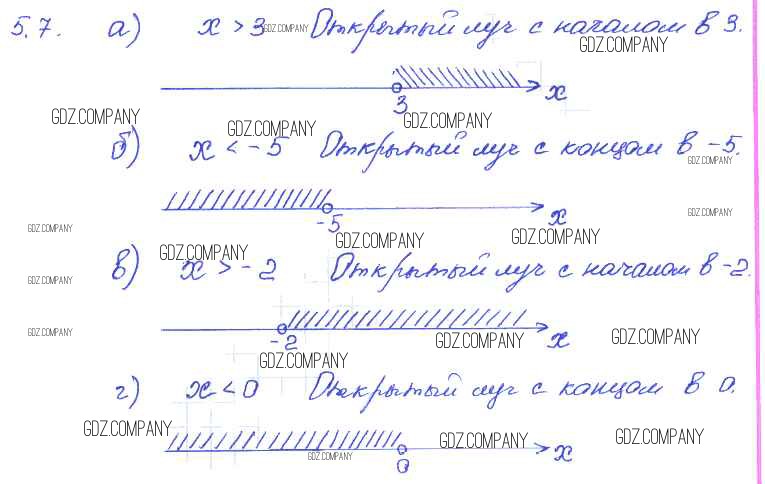 5.7. а) x > 3 GDZ.COMPANY Открытый луч с началом в 3.
GDZ.COMPANY
3 x
GDZ.COMPANY GDZ.COMPANY GDZ.COMPANY
б) x < -5 Открытый луч с концом в -5.
GDZ.COMPANY
-5 x
GDZ.COMPANY GDZ.COMPANY
GDZ.COMPANY GDZ.COMPANY GDZ.COMPANY
в) x > -2 Открытый луч с началом в -2.
GDZ.COMPANY GDZ.COMPANY
-2 x
GDZ.COMPANY GDZ.COMPANY GDZ.COMPANY
GDZ.COMPANY
г) x < 0 Открытый луч с концом в 0.
GDZ.COMPANY GDZ.COMPANY GDZ.COMPANY
0 x
GDZ.COMPANY